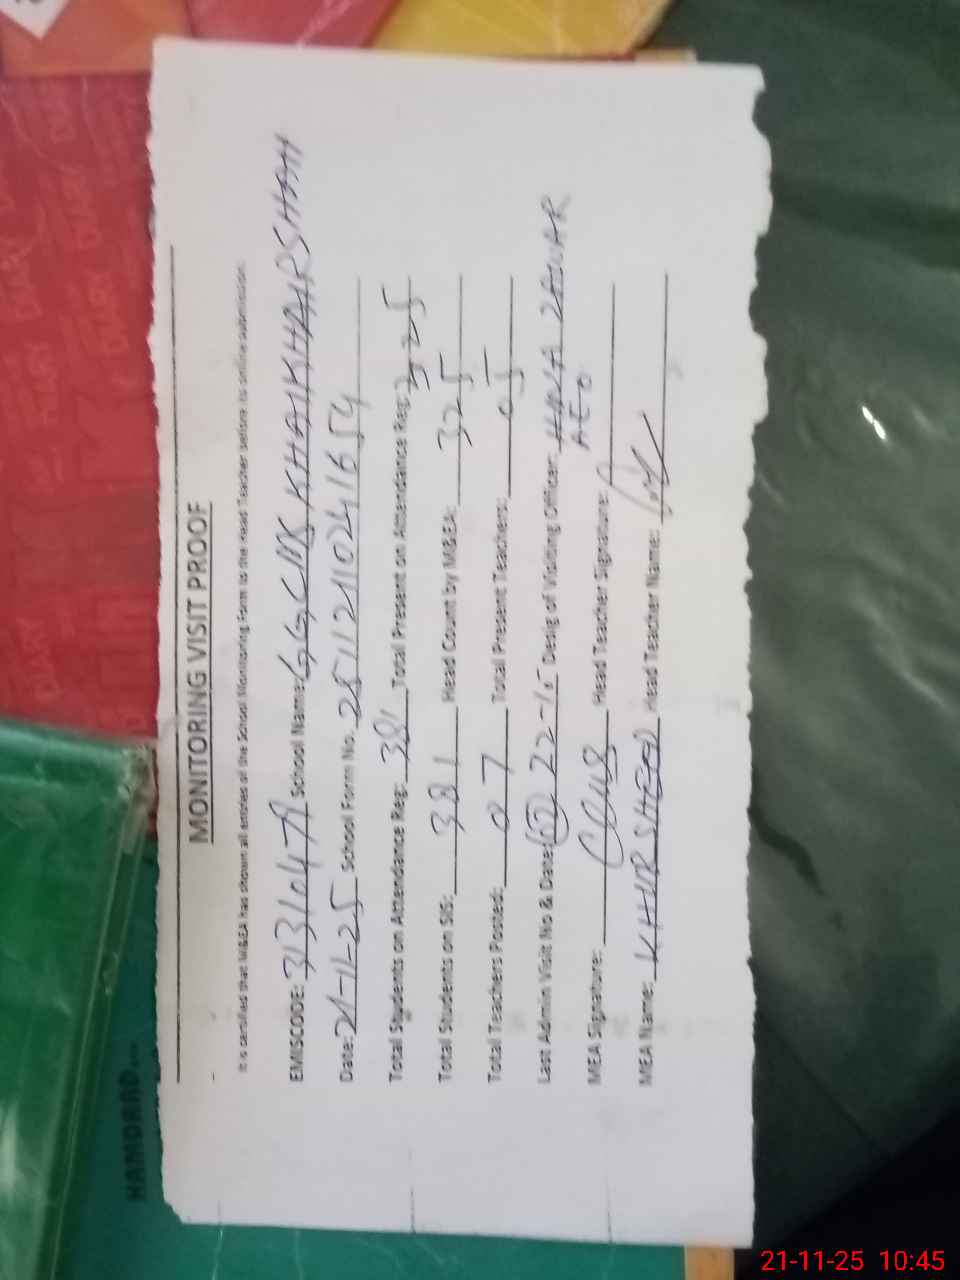 MONITORING VISIT PROOF
It is certified that M&EA has shown all entries of the School Monitoring Form to the Head Teacher before its online submission.
EMISCODE: 31310479 School Name: GGCMS KHAIKHAHRSHAH
Date: 21-11-25 School Form No. 251121102416154
Total Students on Attendance Reg: 381 Total Present on Attendance Reg: 325
Total Students on SIS: 381 Head Count by M&EA: 325
Total Teachers Posted: 07 Total Present Teachers: 05
Last Admin Visit No & Date: 22-10 Desig of Visiting Officer:
AEO
MEA Signature: Head Teacher Signature:
MEA Name: KHURSHEED Head Teacher Name:
HAMDARD...
DIARY
21-11-25 10:45